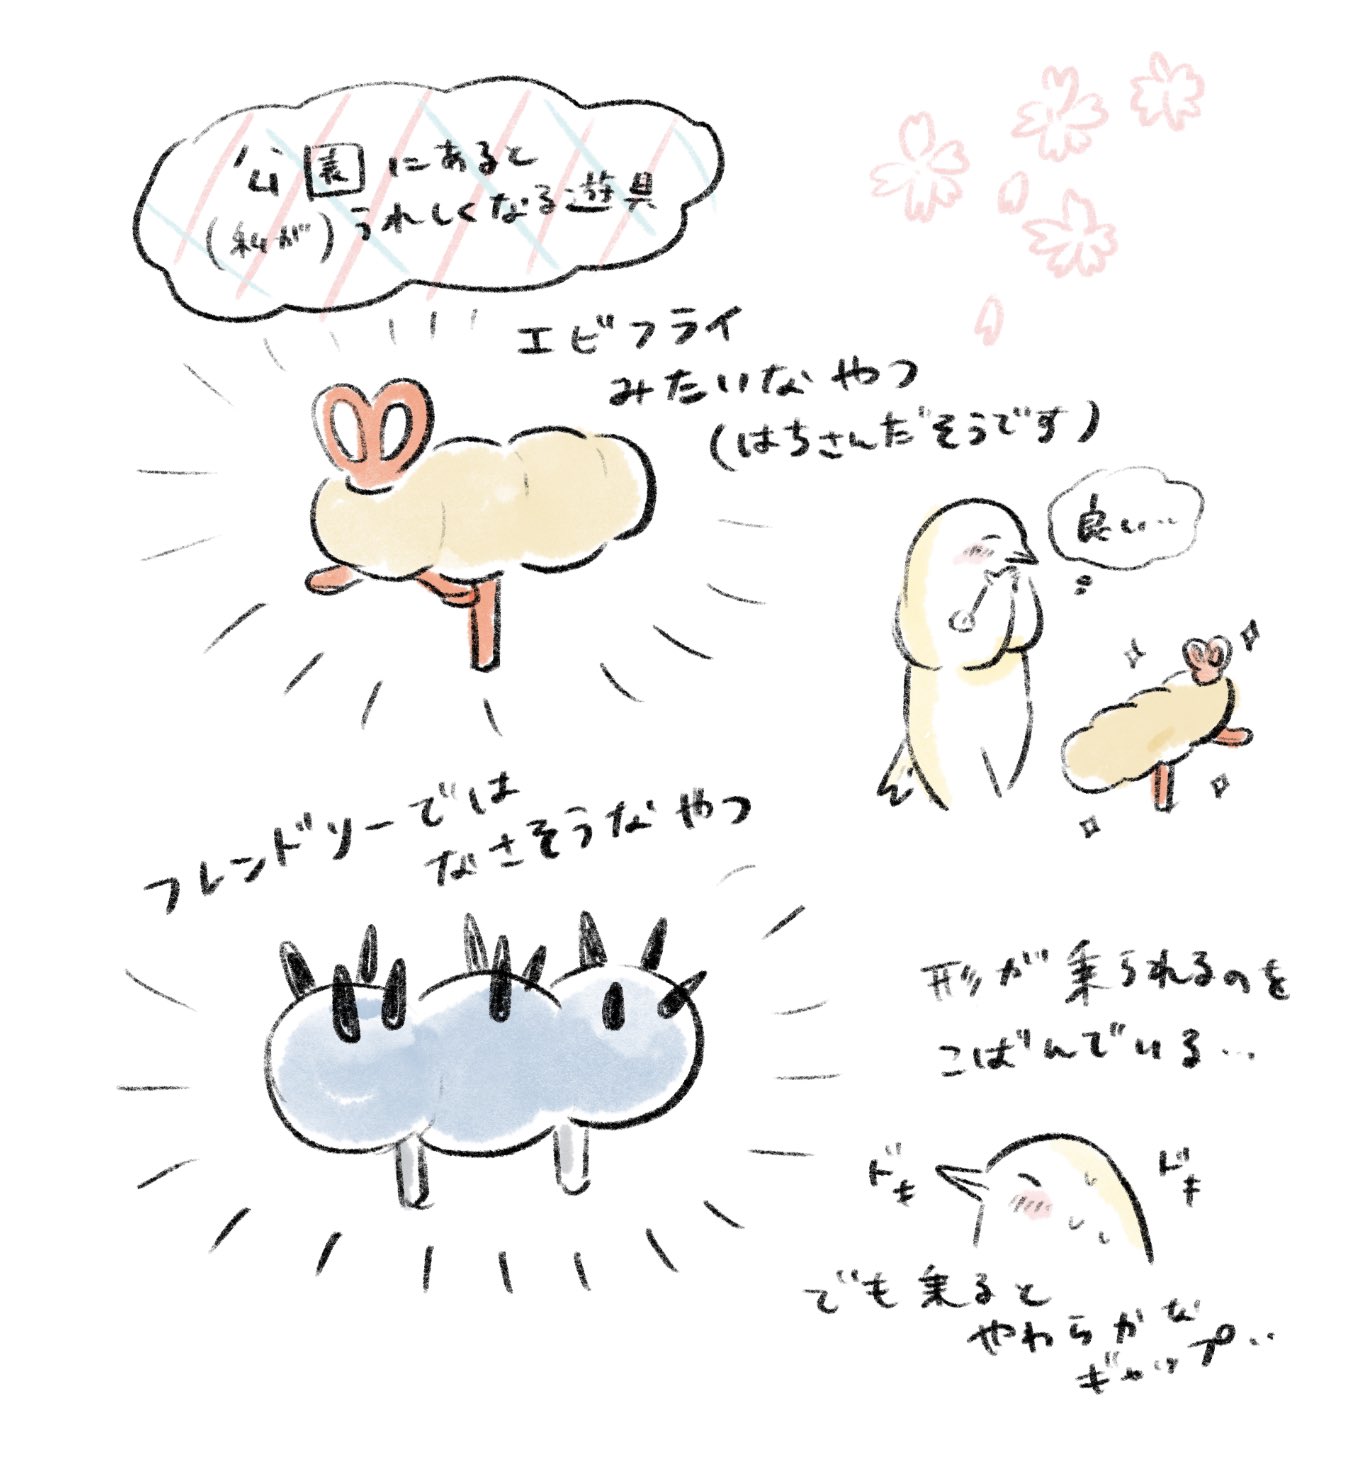 公園にあると
(私が)うれしくなる遊具
エビフライ
みたいなやつ
(はちさんだそうです)
良い…
フレンドリーでは
なさそうなやつ
形が乗られるのを
こばんでいる…
ドキ
ドキ
でも乗ると
やわらかな
ギャップ…